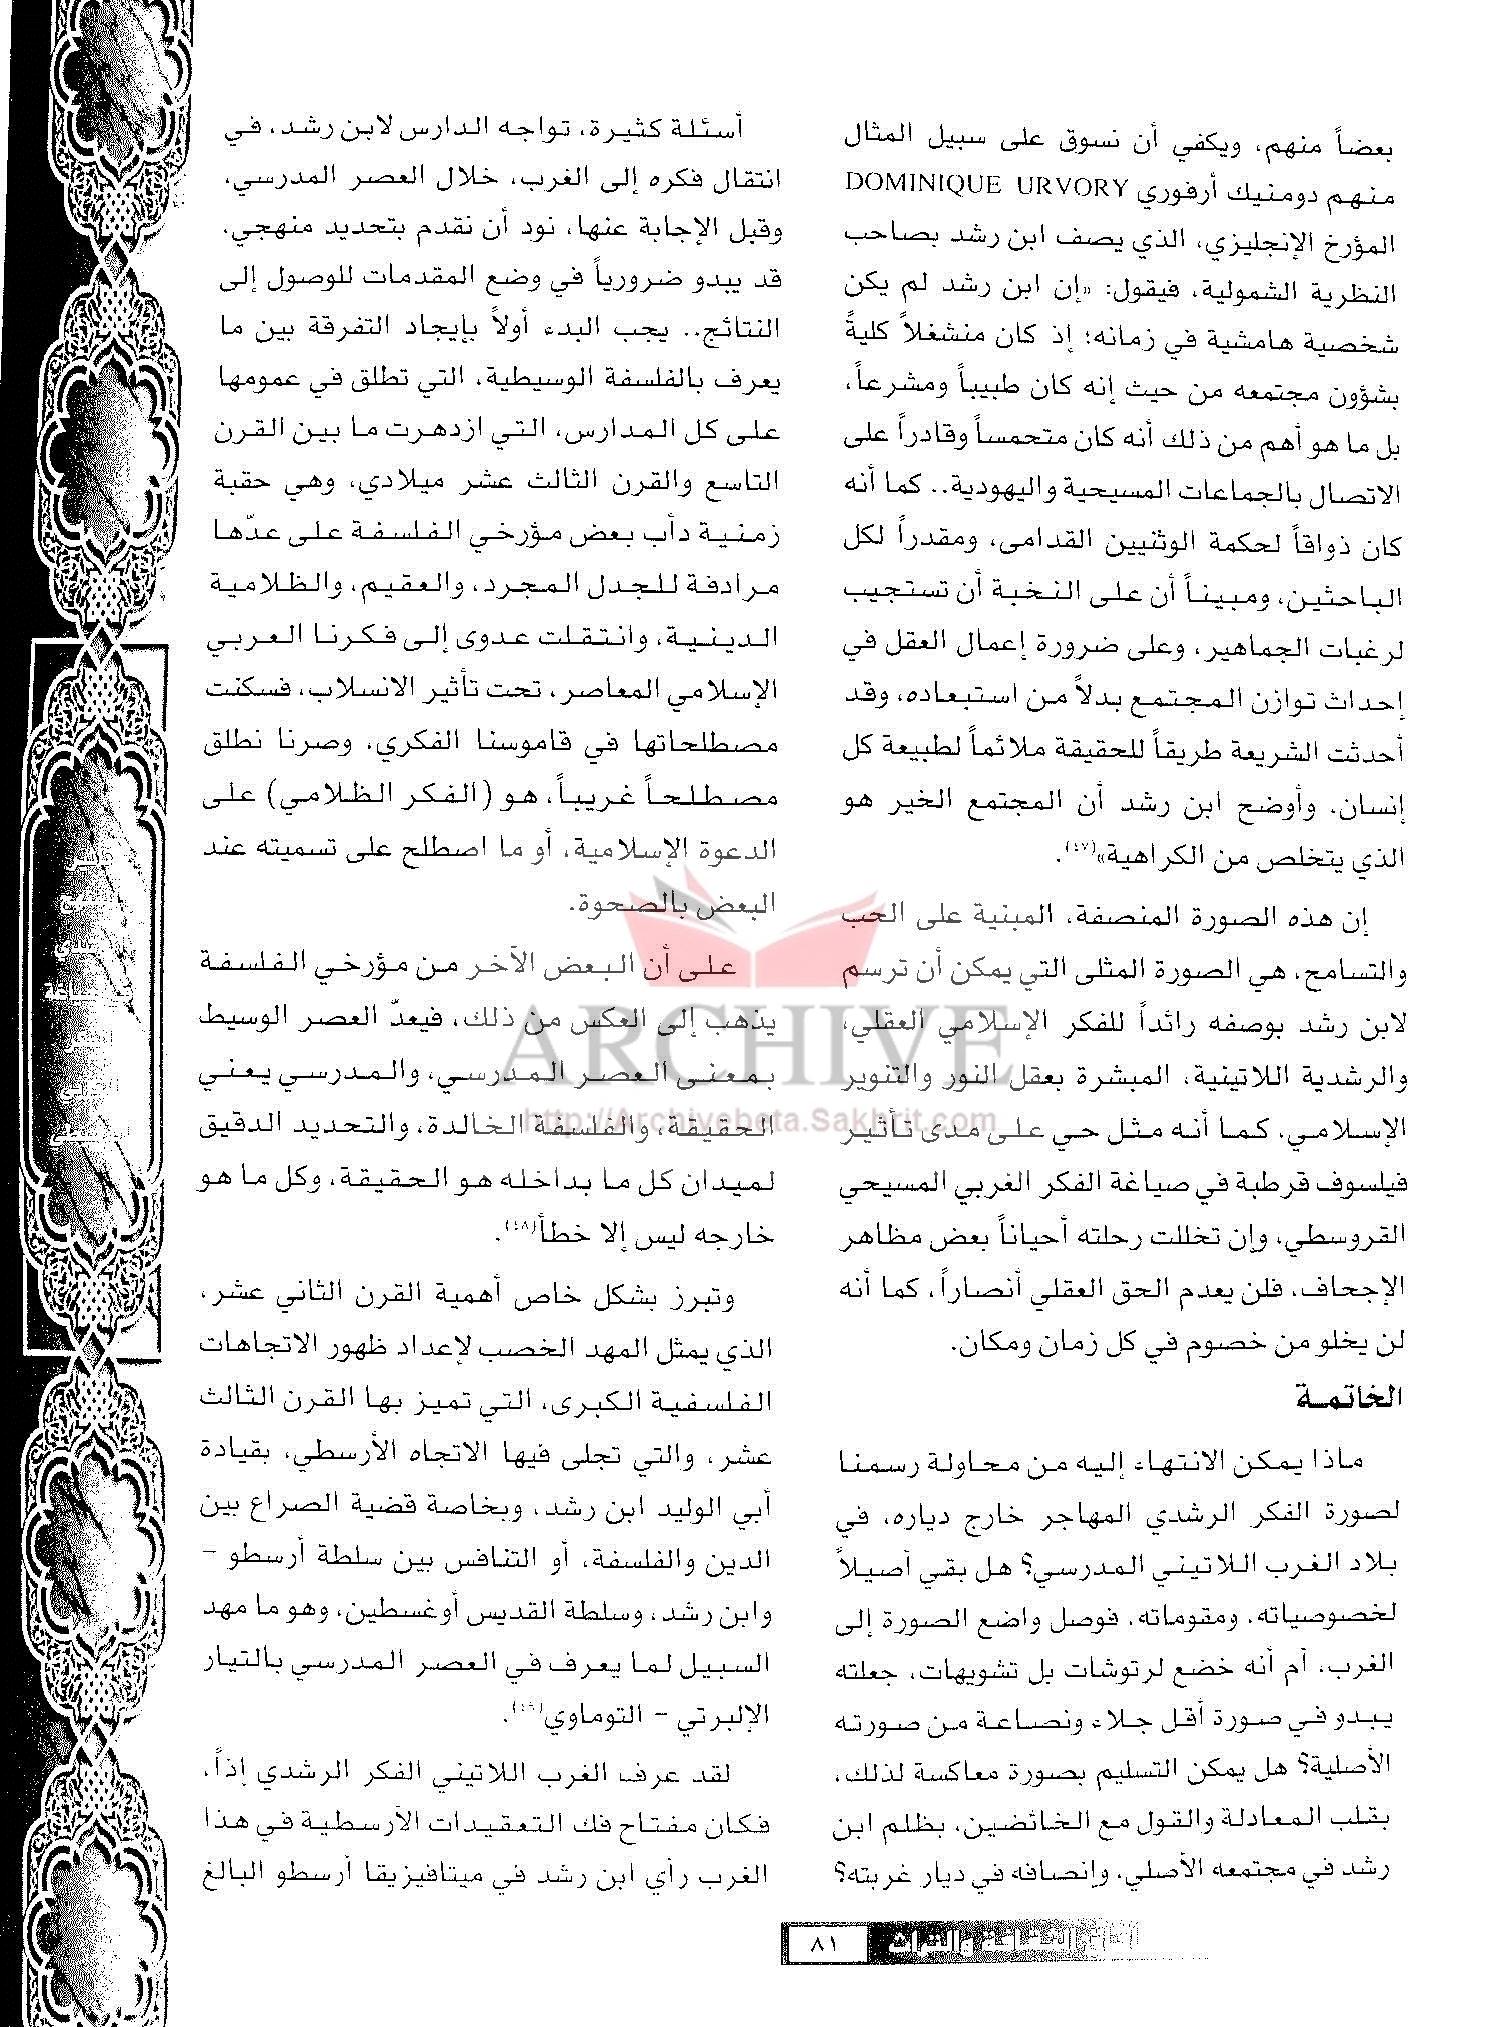 بعضاً منهم، ويكفي أن نسوق على سبيل المثال
منهم دومنيك أرفوري DOMINIQUE URVORY
المؤرخ الإنجليزي، الذي يصف ابن رشد بصاحب
النظرية الشمولية، فيقول: «إن ابن رشد لم يكن
شخصية هامشية في زمانه؛ إذ كان منشغلاً كليةً
بشؤون مجتمعه من حيث إنه كان طبيباً ومشرعاً،
بل ما هو أهم من ذلك أنه كان متحمساً وقادراً على
الاتصال بالجماعات المسيحية واليهودية.. كما أنه
كان ذواقاً لحكمة الوثنيين القدامى، ومقدراً لكل
الباحثين، ومبيناً أن على النخبة أن تستجيب
لرغبات الجماهير، وعلى ضرورة إعمال العقل في
إحداث توازن المجتمع بدلاً من استبعاده، وقد
أحدثت الشريعة طريقاً للحقيقة ملائماً لطبيعة كل
إنسان. وأوضح ابن رشد أن المجتمع الخير هو
الذي يتخلص من الكراهية»(٤٧).
إن هذه الصورة المنصفة، المبنية على الحب
والتسامح، هي الصورة المثلى التي يمكن أن ترسم
لابن رشد بوصفه رائداً للفكر الإسلامي العقلي،
والرشدية اللاتينية، المبشرة بعقل النور والتنوير
الإسلامي، كما أنه مثل حي على مدى تأثير
فيلسوف قرطبة في صياغة الفكر الغربي المسيحي
القروسطي، وإن تخللت رحلته أحياناً بعض مظاهر
الإجحاف، فلن يعدم الحق العقلي أنصاراً، كما أنه
لن يخلو من خصوم في كل زمان ومكان.
الخاتمة
ماذا يمكن الانتهاء إليه من محاولة رسمنا
لصورة الفكر الرشدي المهاجر خارج دياره، في
بلاد الغرب اللاتيني المدرسي؟ هل بقي أصيلاً
لخصوصياته، ومقوماته، فوصل واضع الصورة إلى
الغرب، أم أنه خضع لرتوشات بل تشويهات، جعلته
يبدو في صورة أقل جلاء ونصاعة من صورته
الأصلية؟ هل يمكن التسليم بصورة معاكسة لذلك،
بقلب المعادلة والقول مع الخائضين، بظلم ابن
رشد في مجتمعه الأصلي، وإنصافه في ديار غربته؟
أسئلة كثيرة، تواجه الدارس لابن رشد، في
انتقال فكره إلى الغرب، خلال العصر المدرسي،
وقبل الإجابة عنها، نود أن نقدم بتحديد منهجي،
قد يبدو ضرورياً في وضع المقدمات للوصول إلى
النتائج.. يجب البدء أولاً بإيجاد التفرقة بين ما
يعرف بالفلسفة الوسيطية، التي تطلق في عمومها
على كل المدارس، التي ازدهرت ما بين القرن
التاسع والقرن الثالث عشر ميلادي، وهي حقبة
زمنية دأب بعض مؤرخي الفلسفة على عدّها
مرادفة للجدل المجرد، والعقيم، والظلامية
الدينية، وانتقلت عدوى إلى فكرنا العربي
الإسلامي المعاصر، تحت تأثير الانسلاب، فسكنت
مصطلحاتها في قاموسنا الفكري، وصرنا نطلق
مصطلحاً غريباً، هو (الفكر الظلامي) على
الدعوة الإسلامية، أو ما اصطلح على تسميته عند
البعض بالصحوة.
على أن البعض الآخر من مؤرخي الفلسفة
يذهب إلى العكس من ذلك، فيعدّ العصر الوسيط
بمعنى العصر المدرسي، والمدرسي يعني
الحقيقة، والفلسفة الخالدة، والتحديد الدقيق
لميدان كل ما بداخله هو الحقيقة، وكل ما هو
خارجه ليس إلا خطأ(٤٨).
وتبرز بشكل خاص أهمية القرن الثاني عشر،
الذي يمثل المهد الخصب لإعداد ظهور الاتجاهات
الفلسفية الكبرى، التي تميز بها القرن الثالث
عشر، والتي تجلى فيها الاتجاه الأرسطي، بقيادة
أبي الوليد ابن رشد، وبخاصة قضية الصراع بين
الدين والفلسفة، أو التنافس بين سلطة أرسطو –
وابن رشد، وسلطة القديس أوغسطين، وهو ما مهد
السبيل لما يعرف في العصر المدرسي بالتيار
الإلبرتي – التوماوي(٤٩).
لقد عرف الغرب اللاتيني الفكر الرشدي إذاً،
فكان مفتاح فك التعقيدات الأرسطية في هذا
الغرب رأي ابن رشد في ميتافيزيقا أرسطو البالغ
ARCHIVE
http://Archivebeta.Sakhrit.com
آفاق الثقافة والتراث ٨١